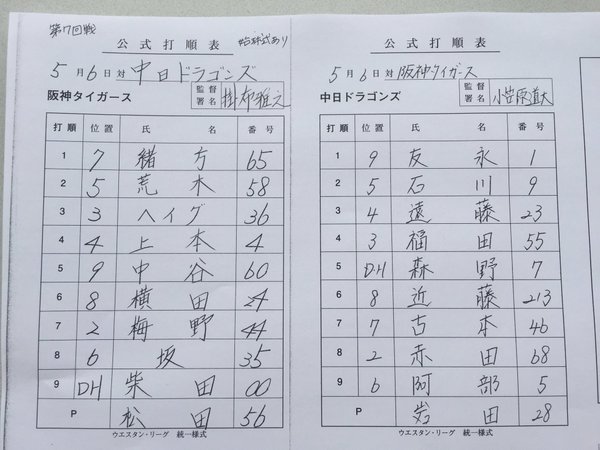 第17回戦
公式打順表
※公式あり
5月6日対中日ドラゴンズ
阪神タイガース
監督署名 掛布雅之
打順 位置 氏名 番号
1 7 緒方 65
2 5 荒木 58
3 3 ヘイグ 36
4 4 上本 4
5 9 中谷 60
6 8 横田 24
7 2 梅野 44
8 6 坂 35
9 DH 柴田 00
P 松田 56
ウエスタン・リーグ 統一様式
公式打順表
5月6日対阪神タイガース
中日ドラゴンズ
監督署名 小笠原道大
打順 位置 氏名 番号
1 9 友永 1
2 5 石川 9
3 4 遠藤 23
4 3 福田 55
5 DH 森野 7
6 8 近藤 213
7 7 古本 46
8 2 赤田 68
9 6 阿部 5
P 岩田 28
ウエスタン・リーグ 統一様式